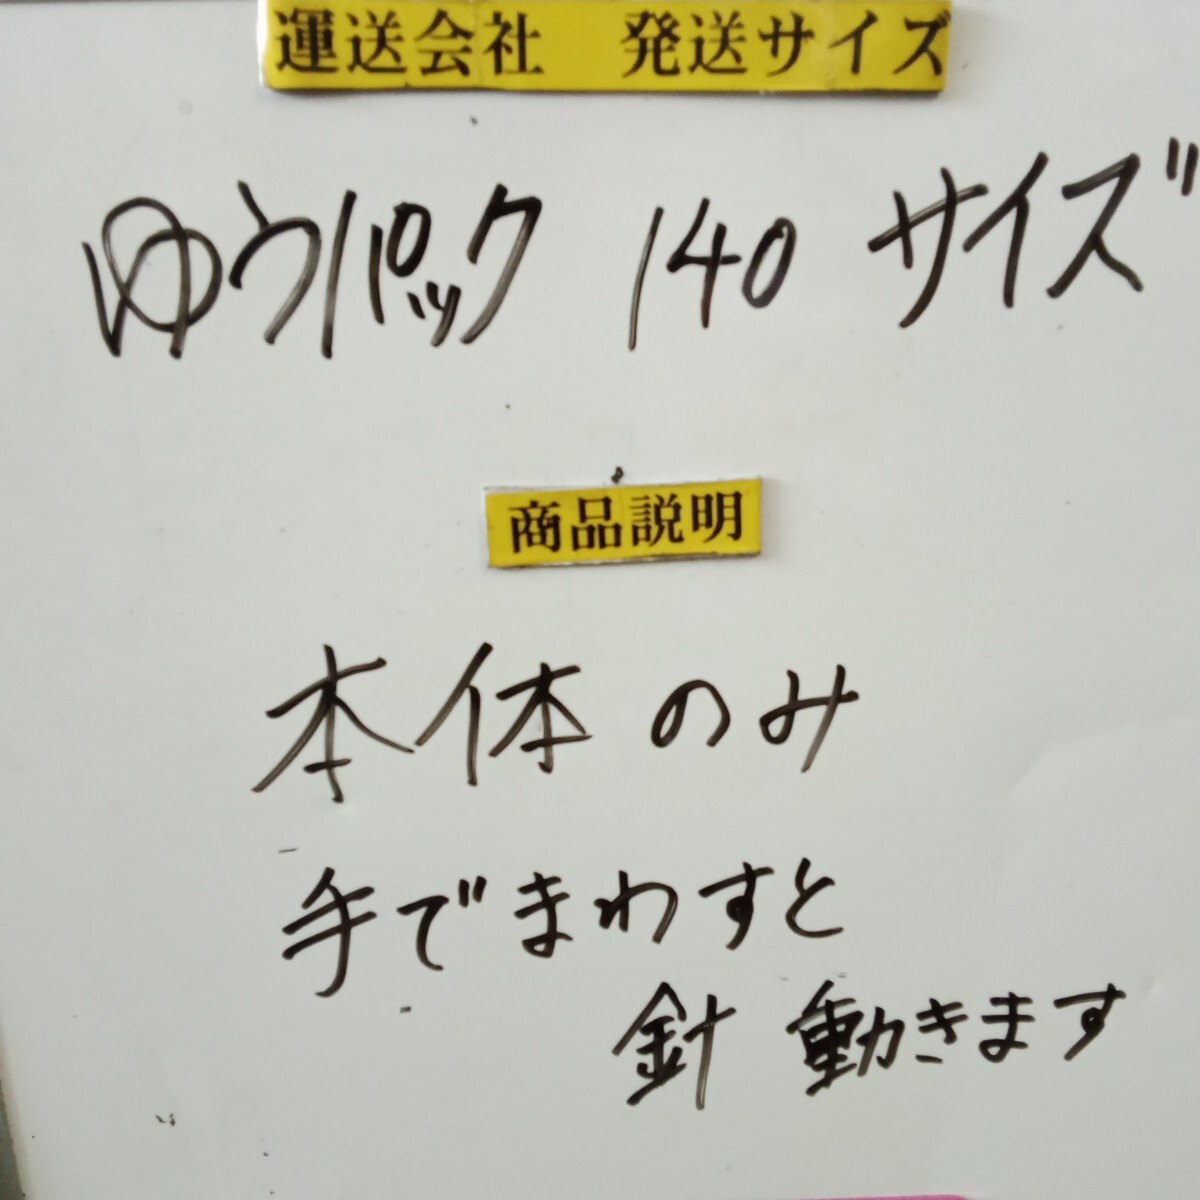 運送会社　発送サイズ
ゆうパック 140 サイズ
商品説明
本体のみ
手でまわすと
針 動きます